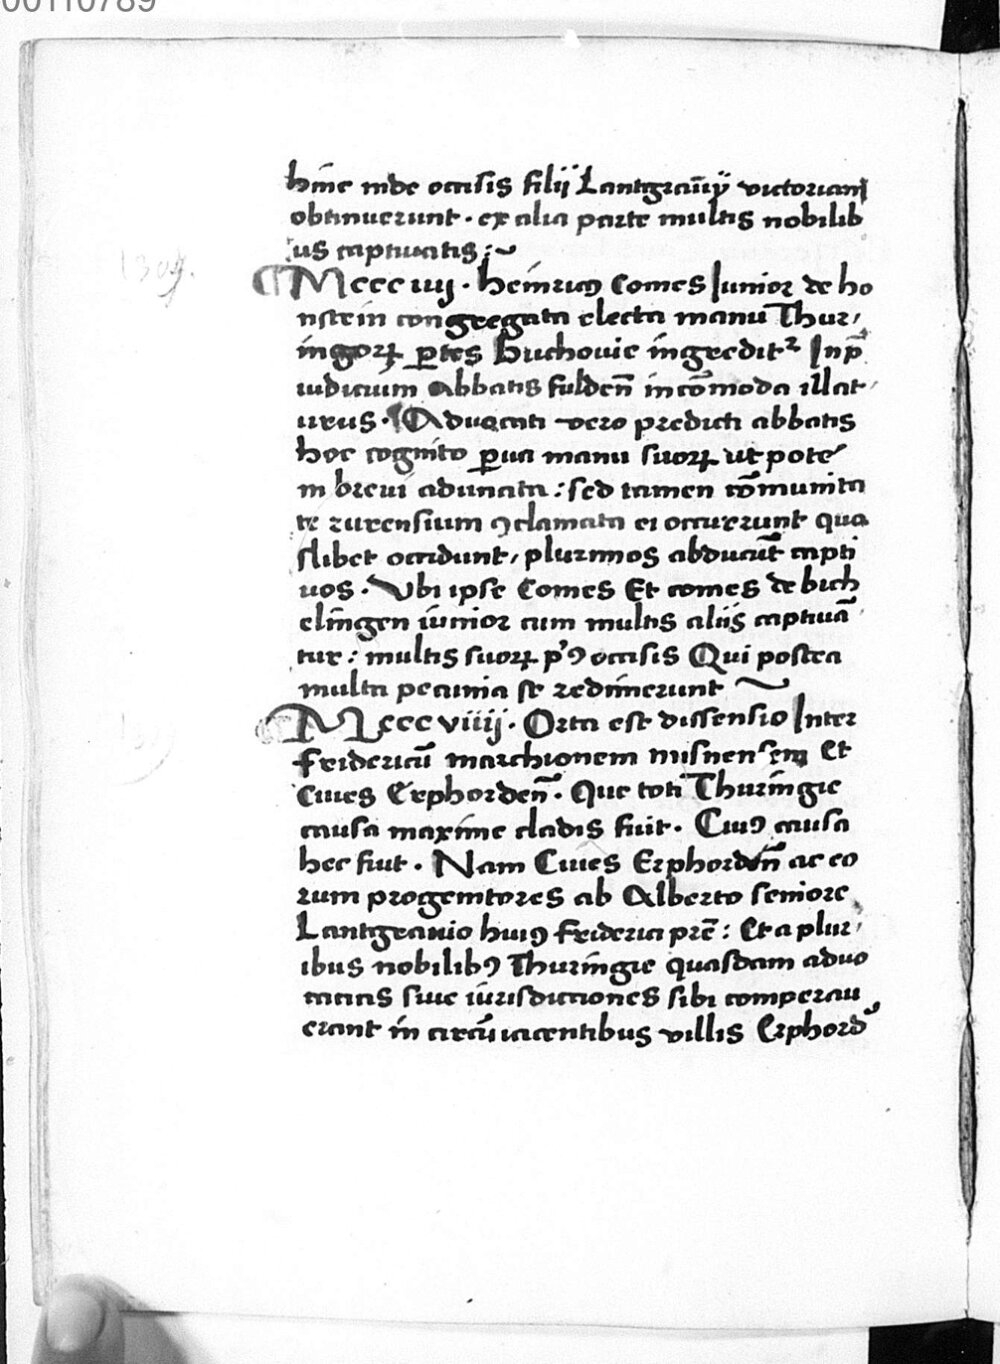 00110789
hinc inde occisis filij Lantgrauij victoriam
obtinuerunt · ex alia parte multis nobilib
us captiuatis :~
1307.
¶ Mccc iiij · heinricꝰ Comes Iunior de ho
nstein congregata electa manu Thur,
ingoꝝ ꝑtes Buchouie ingreditᷣ Inp̄
iudicium Abbatis fulden̄ incōmoda illat,
urus · ¶ Aduocati vero predicti abbatis
hoc cognito ꝑua manu suoꝝ ut pote
in breui adunata : sed tamen cōmunita
te zurensium ꝯclamata ei occurerunt quo
slibet occidunt, plurimos abducūt capti
uos · Vbi ipse Comes Et comes de bich
elingen iunior cum multis aliis captiuā
tur : multis suoꝝ pꝰꝯ occisis Qui postea
multa pecunia se redimerunt ~
¶ Mccc viiij · Orta est dissensio Inter
fridericū marchionem misnensem Et
Ciues Erphorden̄ · Que toti Thuringie
causa maxime cladis fuit · Cuiꝰ causa
hec fuit · Nam Ciues Erphorden̄ ac eo
rum progenitores ab Alberto seniore
Lantgrauio huiꝰ friderici prē : Et a plur,
ibus nobilibꝰ Thuringie quasdam aduo
catias siue iurisdictiones sibi comperau
erant in circū iacentibus villis Erphord'